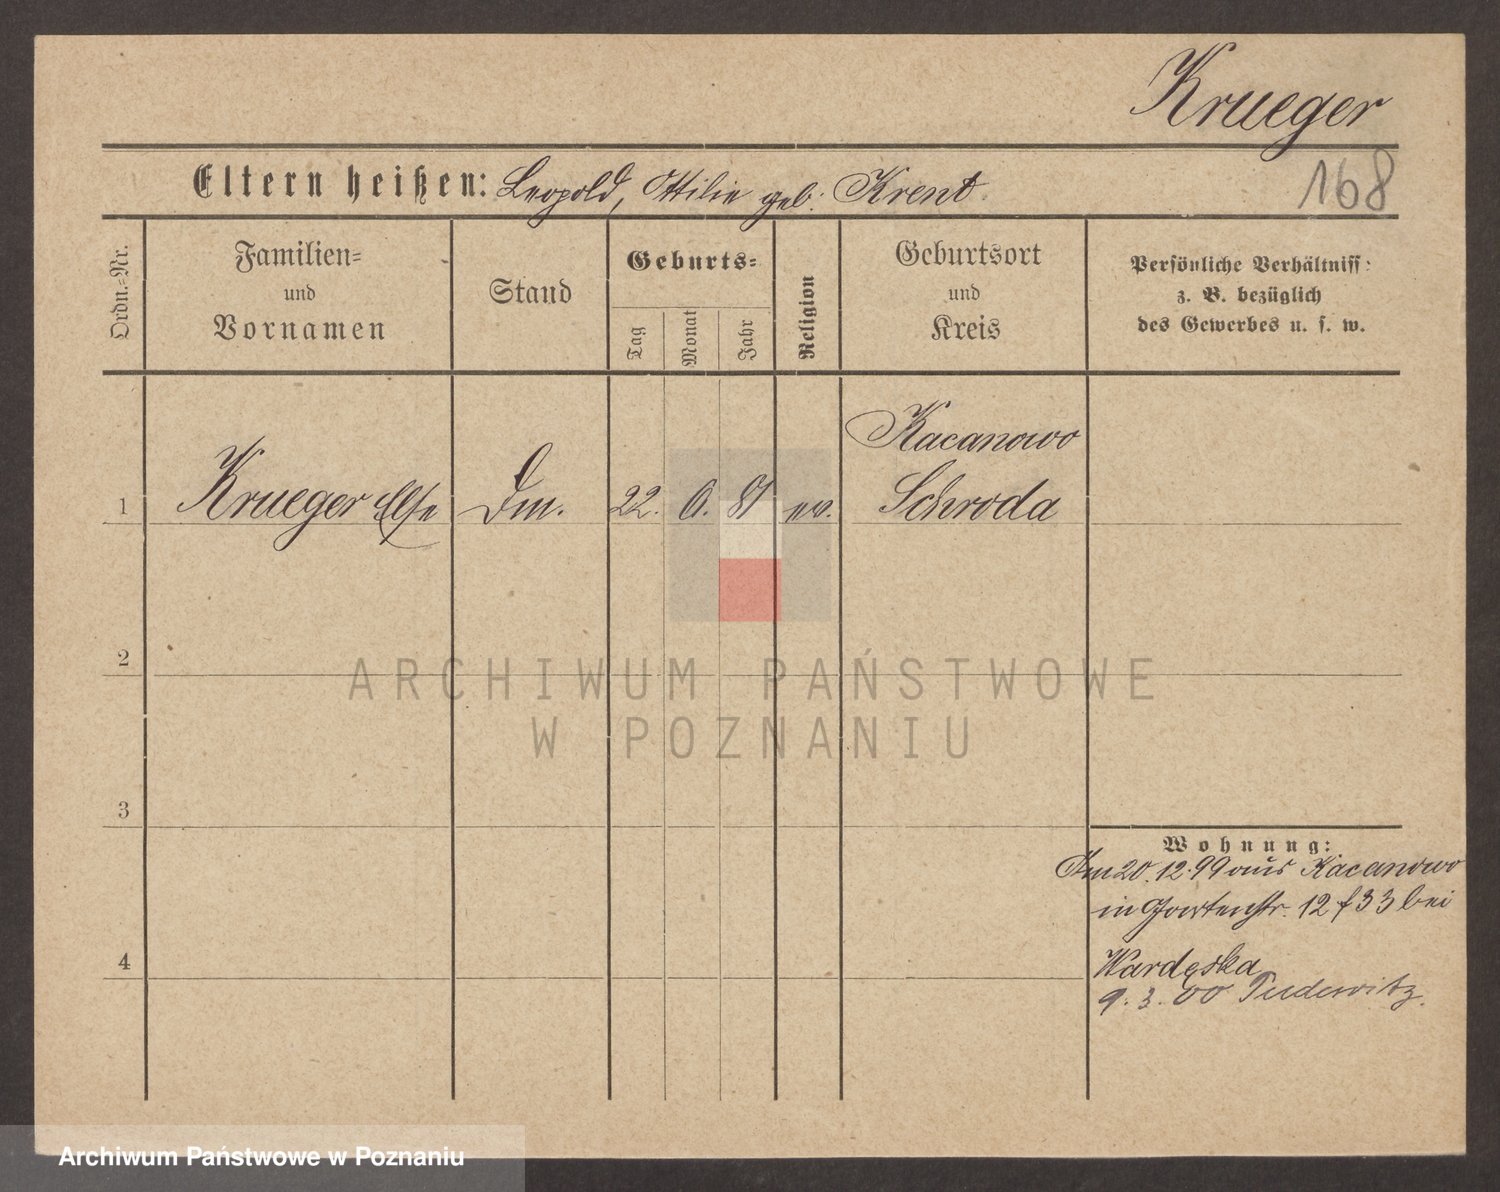 Krueger
168
Eltern heißen: Leopold, Ottilie geb. Krent
Ordn.-Nr.
Familien-
und
Vornamen
Stand
Geburts-
Tag
Monat
Jahr
Religion
Geburtsort
und
Kreis
Persönliche Verhältniss:
z. B. bezüglich
des Gewerbes u. s. w.
1
Krueger Else
Dm.
22. 6. 81
ev.
Kacanowo
Schroda
2
ARCHIWUM PAŃSTWOWE
W POZNANIU
3
Wohnung:
Am 20.12.99 aus Kacanowo
in Gartenstr. 12 f 33 bei
4
9. 3. 00 Pudewitz.
Archiwum Państwowe w Poznaniu